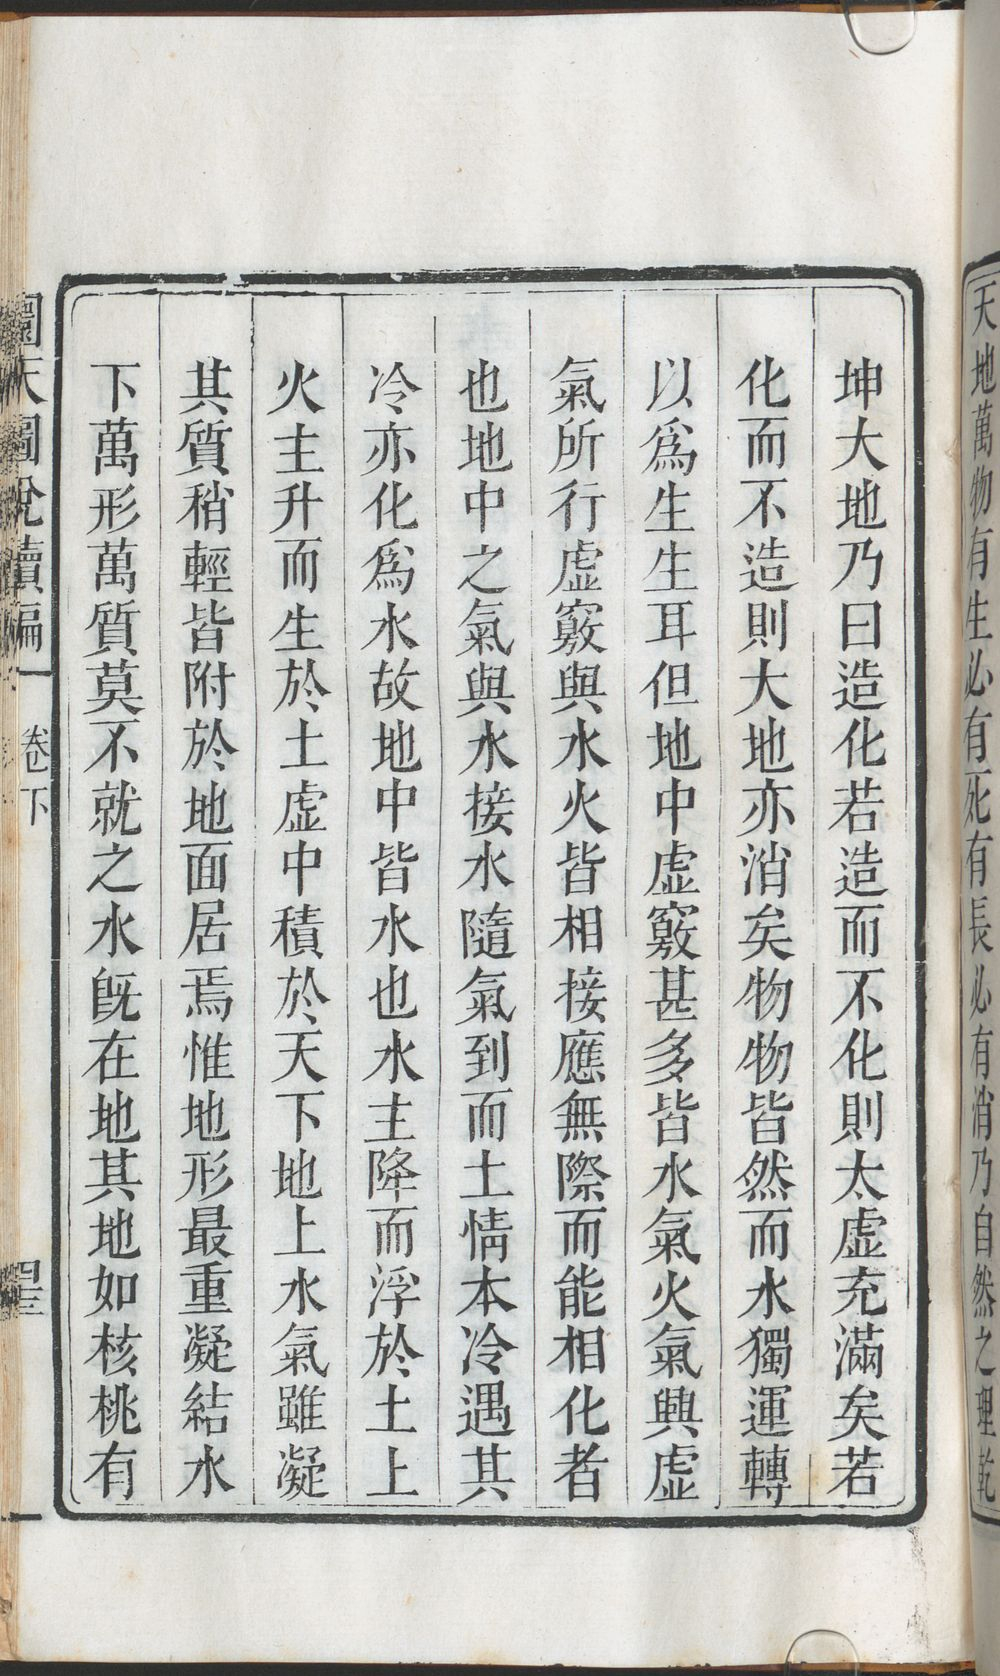 天地萬物有生必有死有長必有消乃自然之理乾
坤大地乃曰造化若造而不化則太虛充滿矣若
化而不造則大地亦消矣物物皆然而水獨運轉
以爲生生耳但地中虛竅甚多皆水氣火氣興虛
氣所行虛竅與水火皆相接應無際而能相化者
也地中之氣與水接水隨氣到而土情本冷遇其
冷亦化爲水故地中皆水也水主降而浮於土上
火主升而生於土虛中積於天下地上水氣雖凝
其質稍輕皆附於地面居焉惟地形最重凝結水
下萬形萬質莫不就之水旣在地其地如核桃有
圜天圖說續編
卷下